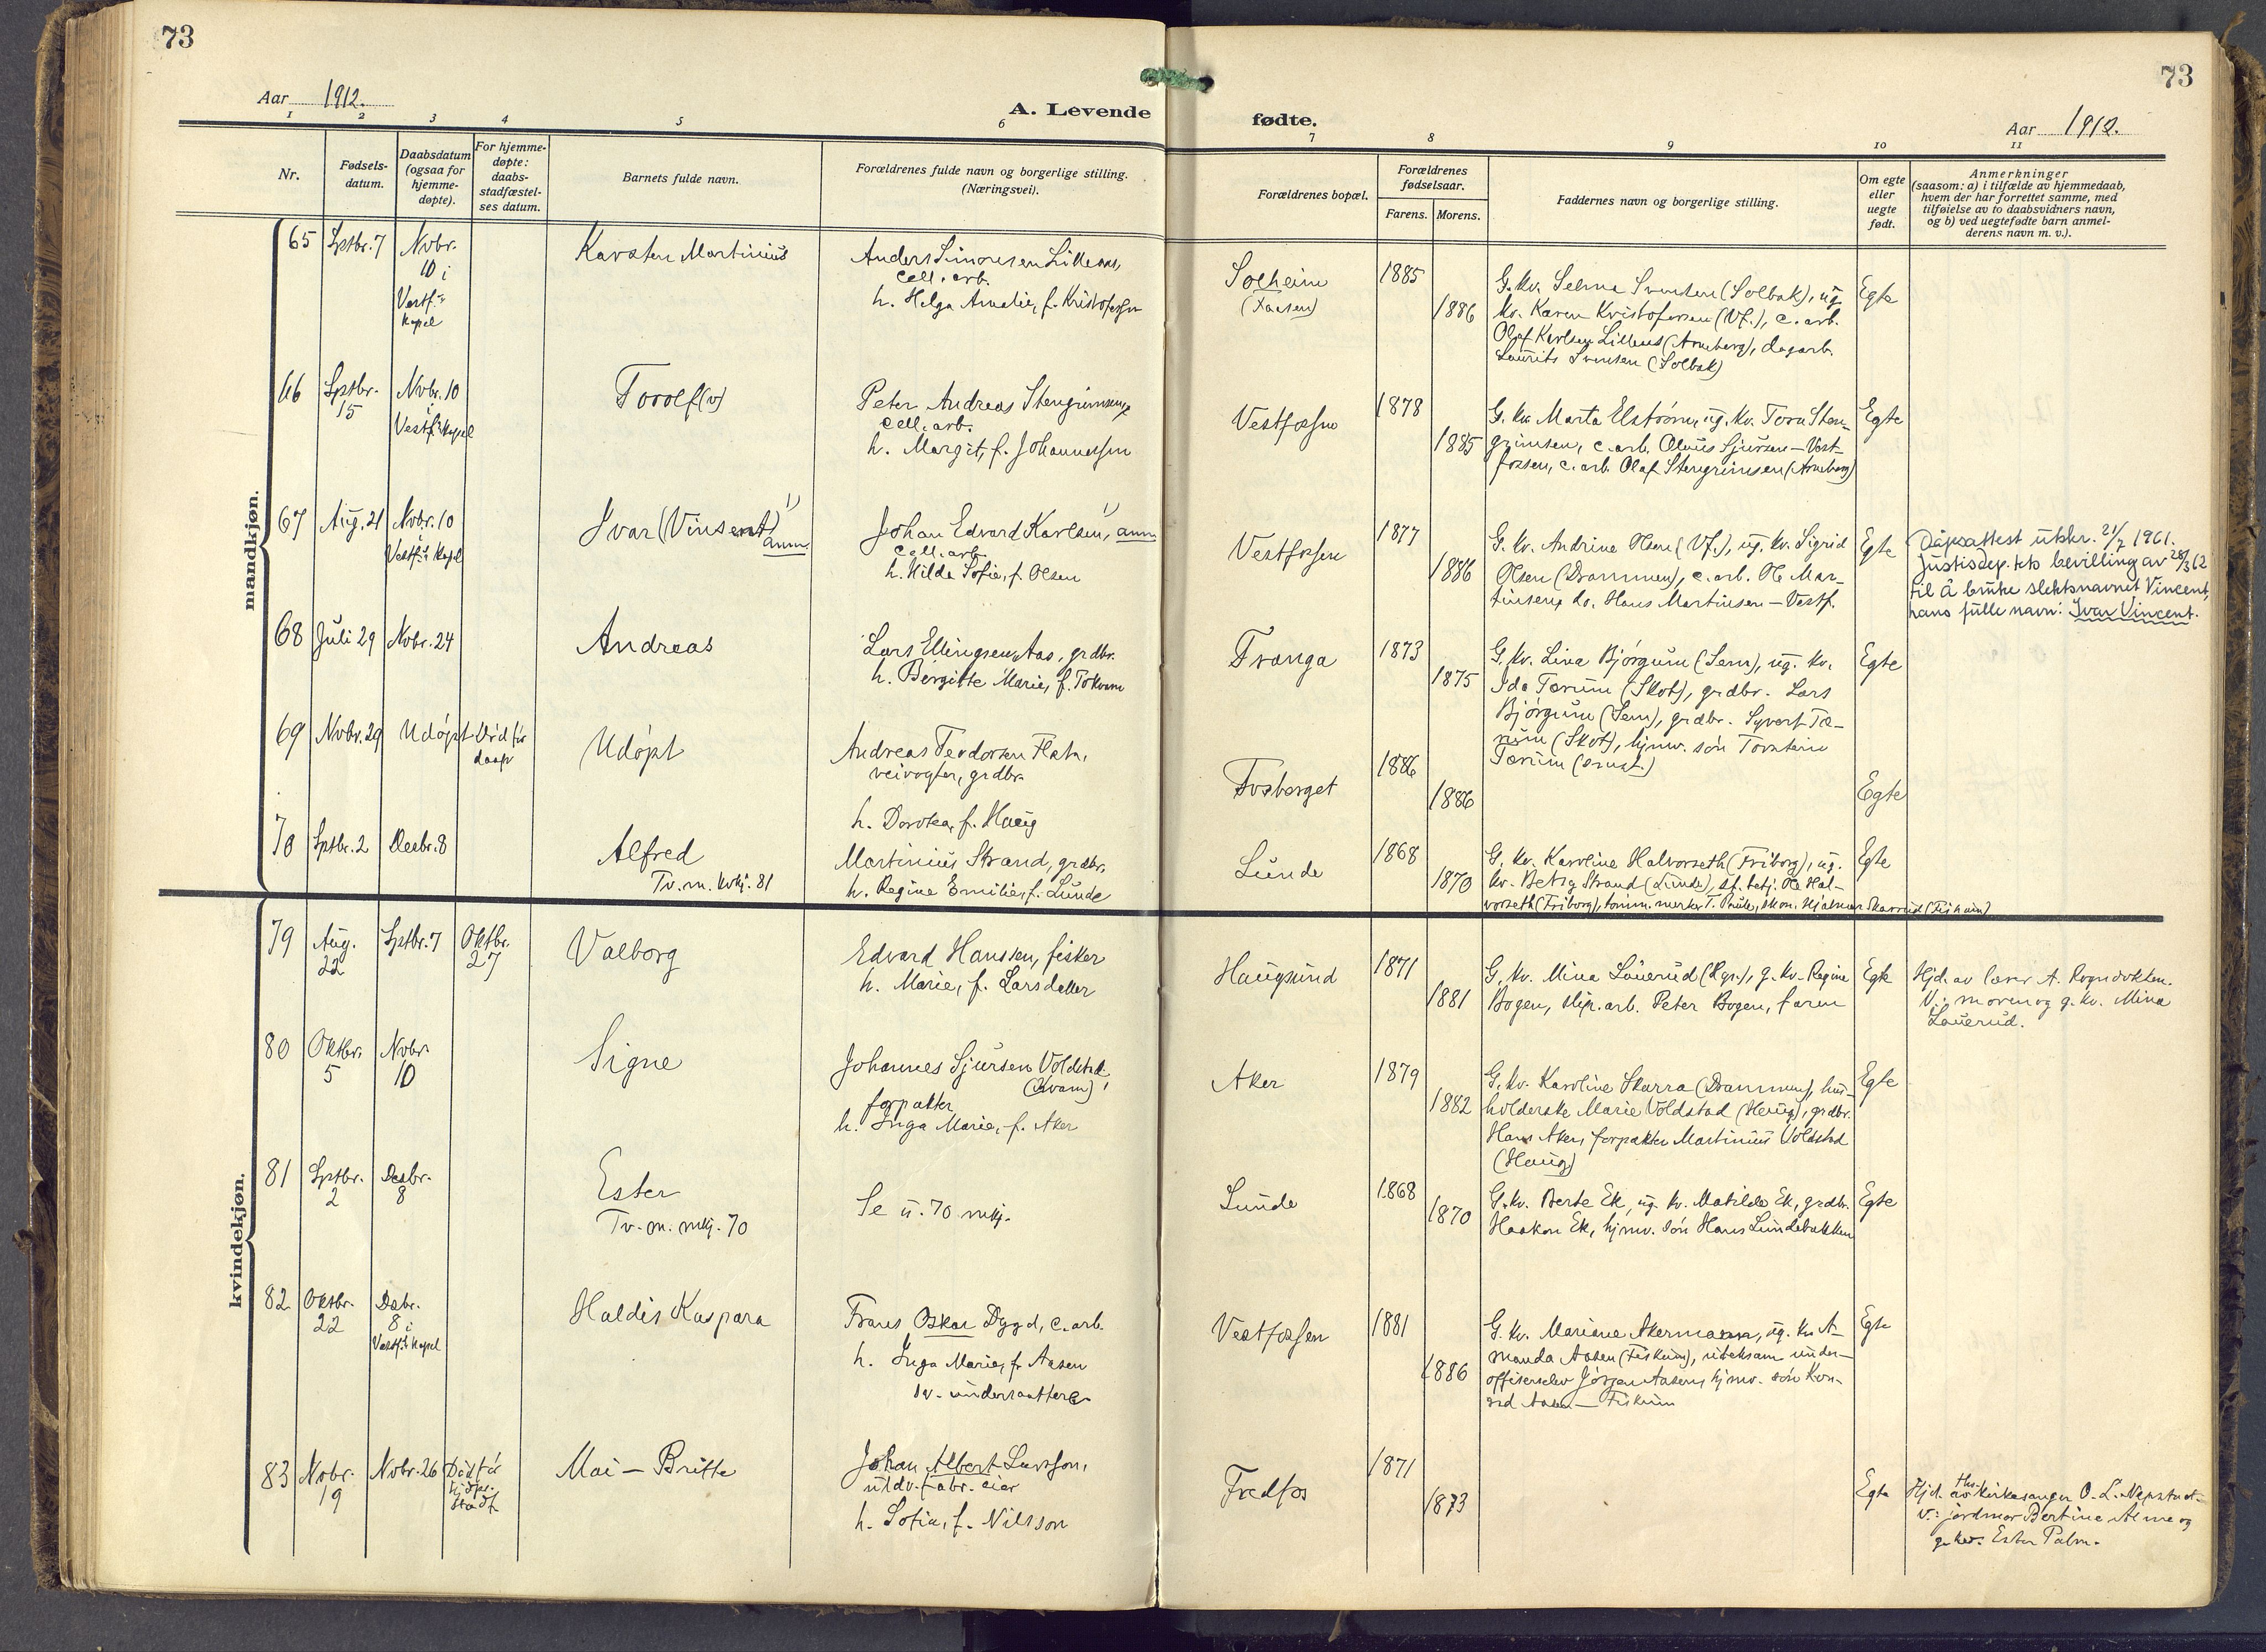 73
73
Aar 1912.
A. Levende
fødte.
Aar 1912.
1 2 3 4 5 6 7 8 9 10 11
Nr.
Fødsels-
datum.
Daabsdatum
(ogsaa for
hjemme-
døpte).
For hjemme-
døpte:
daabs-
stadfæstel-
ses datum.
Barnets fulde navn.
Forældrenes fulde navn og borgerlige stilling.
(Næringsvei).
Forældrenes bopæl.
Forældrenes
fødselsaar.
Farens. Morens.
Faddernes navn og borgerlige stilling.
Om egte
eller
uegte
født.
Anmerkninger
(saasom: a) i tilfælde av hjemmedaab,
hvem der har forrettet samme, med
tilføielse av to daabsvidners navn,
og b) ved uegtefødte barn anmel-
derens navn m. v.).
mandkjøn.
65 Sptbr. 7 Novbr.
10 i
Vestf.
kapel
Karsten Martinius
Anders Simonsen Lilleaas,
cell. arb.
h. Helga Amalie, f. Kristofersen
Solheim
1885
1886
G. kv. Selma Svendsen (Solbak), ug.
kv. Karen Kristofersen (Vf.), c. arb.
Olaf Karlsen Lilleaas (Arneberg), dagarb.
Laurits Svensen (Solbak)
Egte
66 Sptbr.
15
Novbr. 10
i
Vestf. kapel
Torolf (v)
Peter Andreas Stengrimsen,
cell. arb.
h. Margit, f. Johannessen
Vestfossen
1878
1885
G. kv. Marta Elstrøm, ug. kv. Tora Sten-
grimsen, c. arb. Olaus Sjursen — Vest-
fossen, c. arb. Olaf Stengrimsen (Arneberg)
Egte
67 Aug. 21 Novbr. 10
i
Vestf. kapel
Ivar (Vinsent) 1)
anm.
Johan Edvard Karlsen, 1) anm.
cell. arb.
h. Hilda Sofie, f. Olsen
Vestfossen
1877
1886
G. kv. Andrine Olsen (Vf.), ug. kv. Sigrid
Olsen (Drammen), c. arb. Ole Mar-
tinsen, do. Hans Martinsen — Vestf.
Egte
Dåpsattest utskr. 21/7 1961.
Justisdep.tets bevilling av 28/3 62
til å bruke slektsnavnet Vincent,
hans fulle navn: Ivar Vincent.
68 Juli 29 Novbr. 24
Andreas
Lars Ellingsen Aas, grdbr.
h. Birgitte Marie, f. Tokvam
Franga
1873
1875
G. kv. Lina Bjørgum (Sem), ug. kv.
Ida Tærum (Skot), grdbr. Lars
Bjørgum (Sem), grdbr. Syvert Tæ-
rum (Skot), hjmv. søn Torstein
Tærum
Egte
69 Novbr. 29 Udøpt Død før
daap
Udøpt
Andreas Teodorsen Flata,
veivogter, grdbr.
h. Dorotea, f. Haug
Fosberget
1886
1886
Egte
70 Sptbr. 2 Desbr. 8
Alfred
Tv. m. kvkj. 81
Martinius Strand, grdbr.
h. Regine Emilie, f. Lunde
Lunde
1868
1870
G. kv. Karoline Halvorseth (Friborg), ug.
kv. Betsy Strand (Lunde), st. betj. Ole Hal-
vorseth (Friborg), tømm. merker T. Paule, skom. Hjalmar Skarrud (Fiskum)
Egte
kvindekjøn.
79 Aug.
22
Sptbr. 7 Oktbr.
27
Valborg
Edvard Hanssen, fisker
h. Marie, f. Larsdatter
Haugsund
1871
1881
G. kv. Mina Lauerud (Hgs.), g. kv. Regine
Bogen, slip. arb. Peter Bogen, faren
Egte
Hjd. av lærer A. Rognvokken.
V.: moren og g. kv. Mina
Lauerud.
80 Oktbr.
5
Novbr.
10
Signe
Johannes Sjursen Voldstad
(Kvam),
forpakter
h. Inga Marie, f. Aker
Aker
1879
1882
G. kv. Karoline Skarra (Drammen), hus-
holderske Marie Voldstad (Haug), grdbr.
Hans Aker, forpakter Martinius Voldstad
(Haug)
Egte
81 Sptbr.
2
Desbr.
8
Ester
Tv. m. mkj. 70
Se u. 70 mkj.
Lunde
1868
1870
G. kv. Berte Ek, ug. kv. Matilde Ek, grdbr.
Haakon Ek, hjmv. søn Hans Lundebakken
Egte
82 Oktbr.
22
Desbr.
8 i
Vestf. kapel
Haldis Kaspara
Frans Oskar Dygd, c. arb.
h. Inga Marie, f. Aasen
sv. undersaatter
Vestfossen
1881
1886
G. kv. Mariane Akermann, ug. kv. A-
manda Aasen (Fiskum), uteksam. under-
offiserselev Jørgen Aasen, hjmv. søn Kon-
rad Aasen — Fiskum
Egte
83 Novbr.
19
Novbr. 26 Død før
hjdpr.
stadf.
Mai — Britte
Johan Albert Larsson,
uldv. fabr. eier
h. Sofia, f. Nilsson
Fredfos
1871
1873
Egte
Hjd. av kirkesanger O. L. Nepstad
V.: jordmor Bertine Alme og
g. kv. Ester Palm.